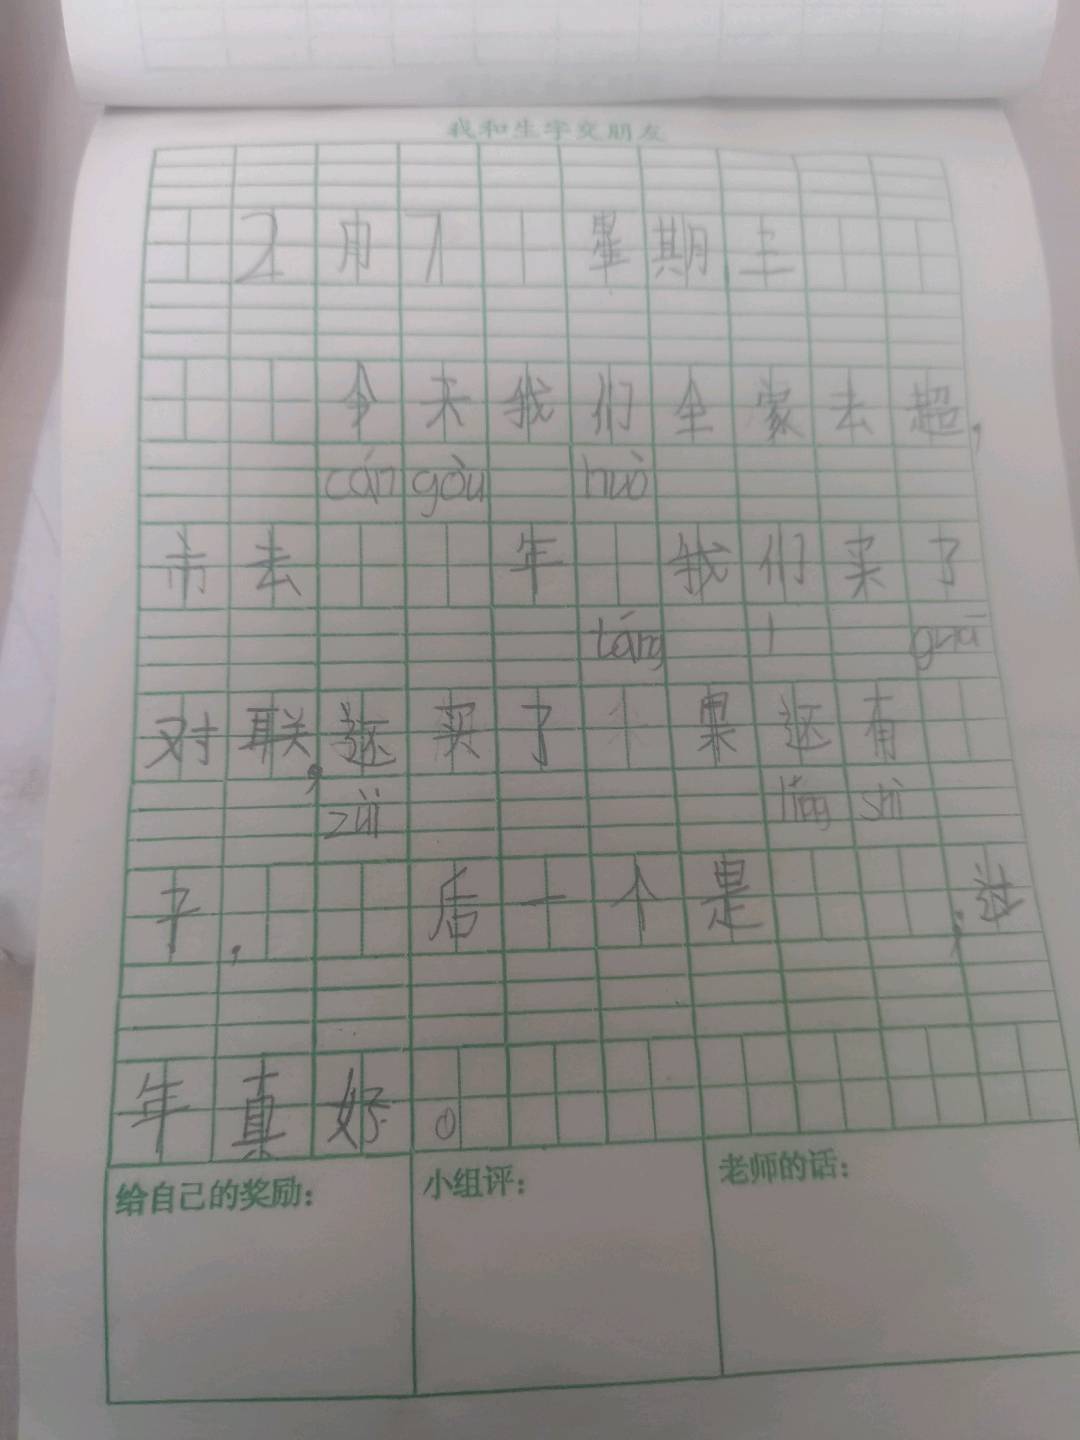 我和生字交朋友
2月7 星期三
今天我们全家去超,
cán gòu huò
市去 年 我们买了
táng guā
对联,还买了 果还有
zuì líng shì
子, 后一个是 ,过
年真好。
给自己的奖励: 小组评: 老师的话: